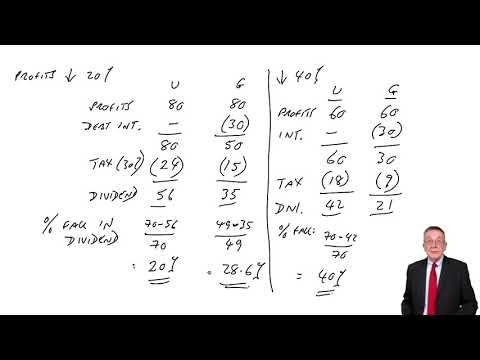 PROFITS ↓ 20%
U G
PROFITS 80 80
DEBT INT. — (30)
80 50
TAX (30%) (24) (15)
DIVIDEND 56 35
% FALL IN DIVIDEND
70-56 / 70
49-35 / 49
= 20% = 28.6%
↓ 40%
U G
PROFITS 60 60
INT. — (30)
60 30
TAX (18) (9)
DIVI. 42 21
% FALL: 70-42 / 70
= 40%